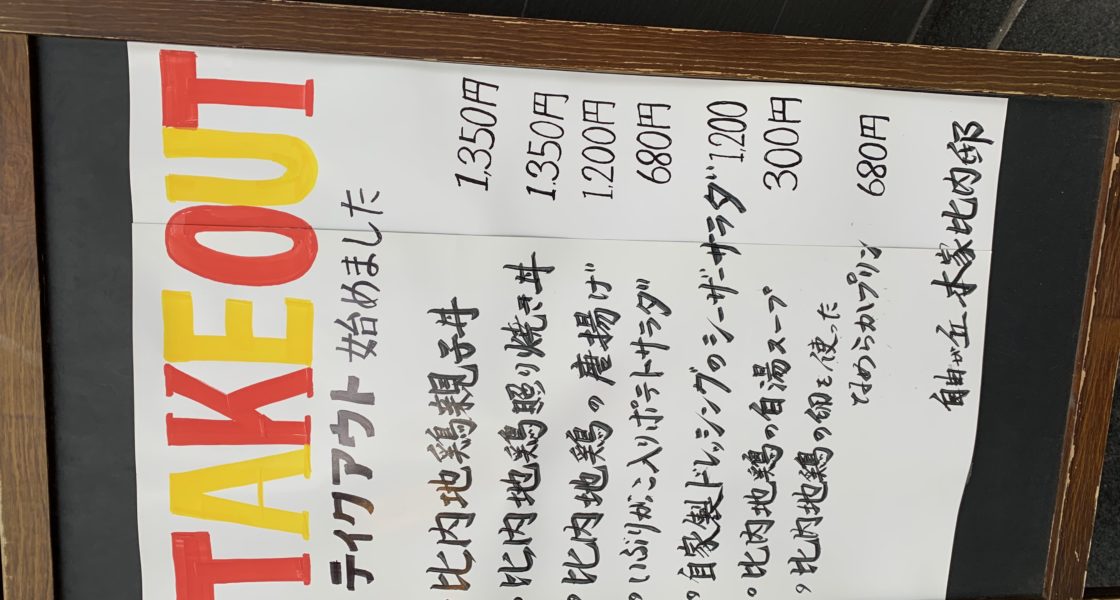 TAKEOUT
テイクアウト 始めました
・比内地鶏親子丼 1,350円
・比内地鶏照り焼き丼 1.350円
・比内地鶏の唐揚げ 1.200円
・いぶりがっこ入りポテトサラダ 680円
・自家製ドレッシングのシーザーサラダ 1,200
・比内地鶏の白湯スープ 300円
・比内地鶏の卵を使った
なめらかプリン 680円
自由が丘 本家比内邸